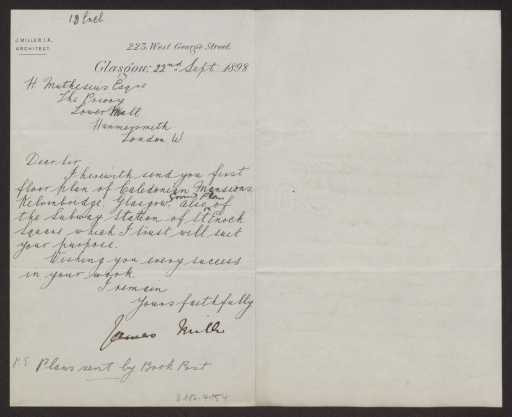 18 Encl
J. MILLER I.A.
ARCHITECT.
223, West George Street
Glasgow, 22nd Sept 1898
H Mathesius Esqre
The Priory
Lower Mall
Hammersmith
London W
Dear Sir
I herewith send you first
floor plan of Caledonian Mansions
Kelvinbridge. Glasgow. Also Ground Plan of
the Subway Station of St Enoch
Square which I trust will suit
your purpose.
Wishing you every success
in your work
I remain
Yours faithfully
James Miller
P.S Plans sent by Book Post